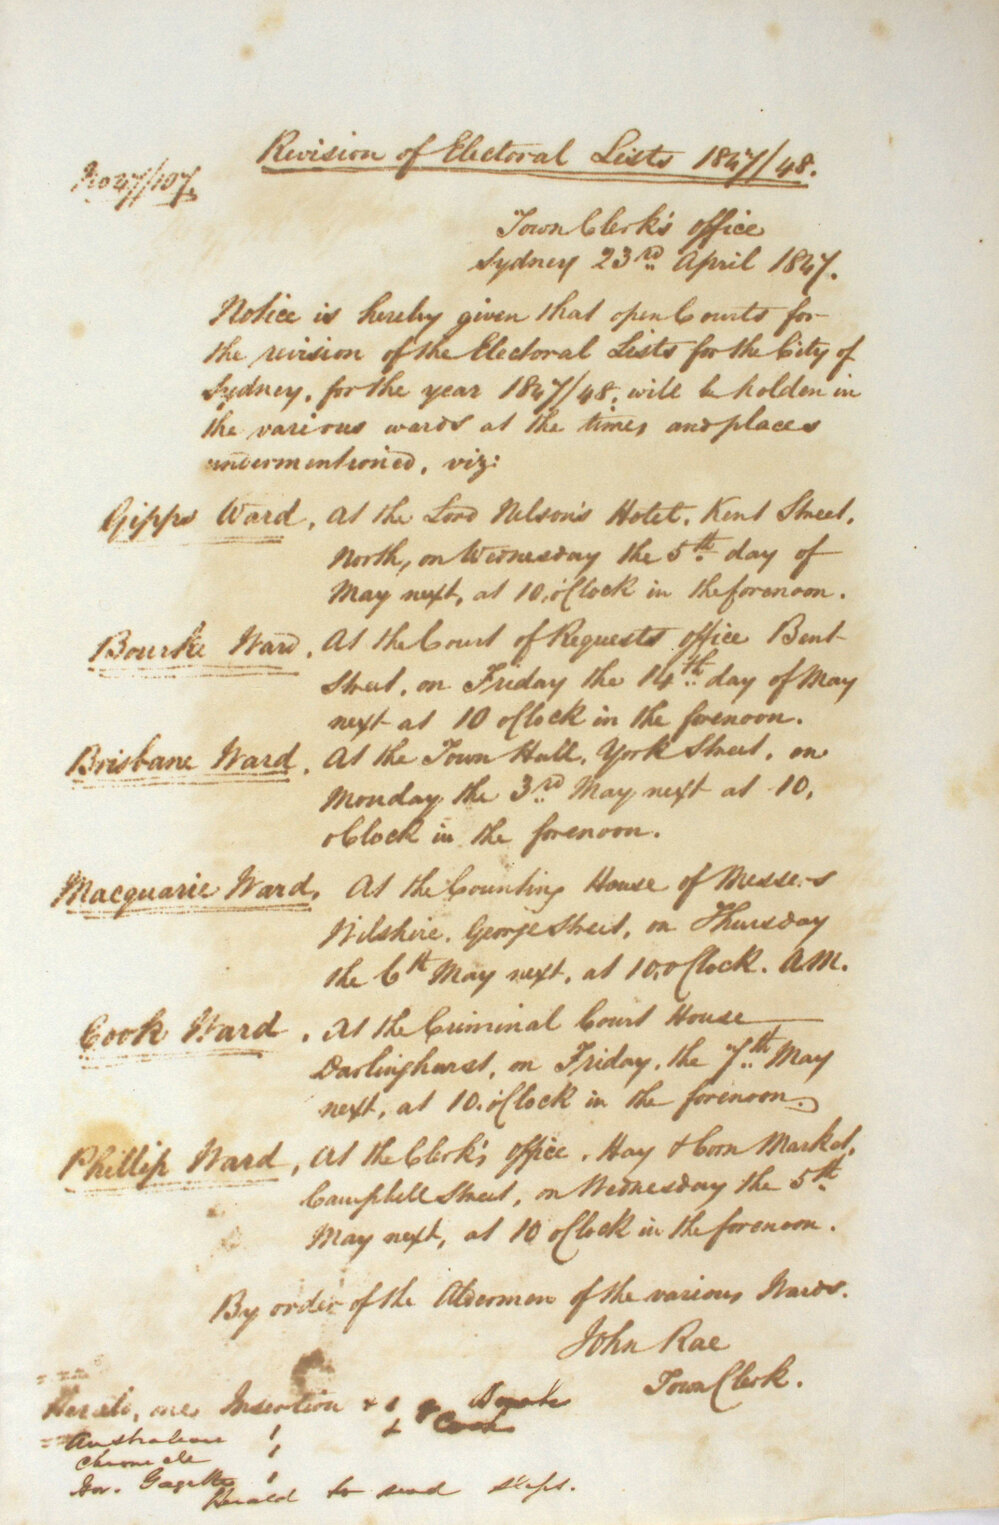 Revision of Electoral Lists 1847/48.
No 47/107.
Town Clerk's office
Sydney 23rd April 1847.
Notice is hereby given that open Courts for
the revision of the Electoral Lists for the City of
Sydney, for the year 1847/48, will be holden in
the various wards at the times and places
undermentioned, viz:
Gipps Ward, At the Lord Nelson's Hotel, Kent Street,
North, on Wednesday the 5th day of
May next, at 10, o'Clock in the forenoon.
Bourke Ward, At the Court of Requests office Bent
Street, on Friday the 14th day of May
next at 10 oClock in the forenoon.
Brisbane Ward, At the Town Hall, York Street, on
Monday the 3rd May next at 10,
oClock in the forenoon.
Macquarie Ward, At the Counting House of Messrs
Wilshire, George Street, on Thursday
the 6th May next, at 10, oClock. AM.
Cook Ward, At the Criminal Court House
Darlinghurst, on Friday, the 7th May
next, at 10. o'Clock in the forenoon.
Phillip Ward, At the Clerk's office, Hay & Corn Market,
Campbell Street, on Wednesday the 5th
May next, at 10 oClock in the forenoon.
By order of the Aldermen of the various Wards.
John Rae
Town Clerk.
Herald, one Insertion & 1
Cook
Australian 1
Chronicle 1
Gov. Gazette 1
Herald to send slips.